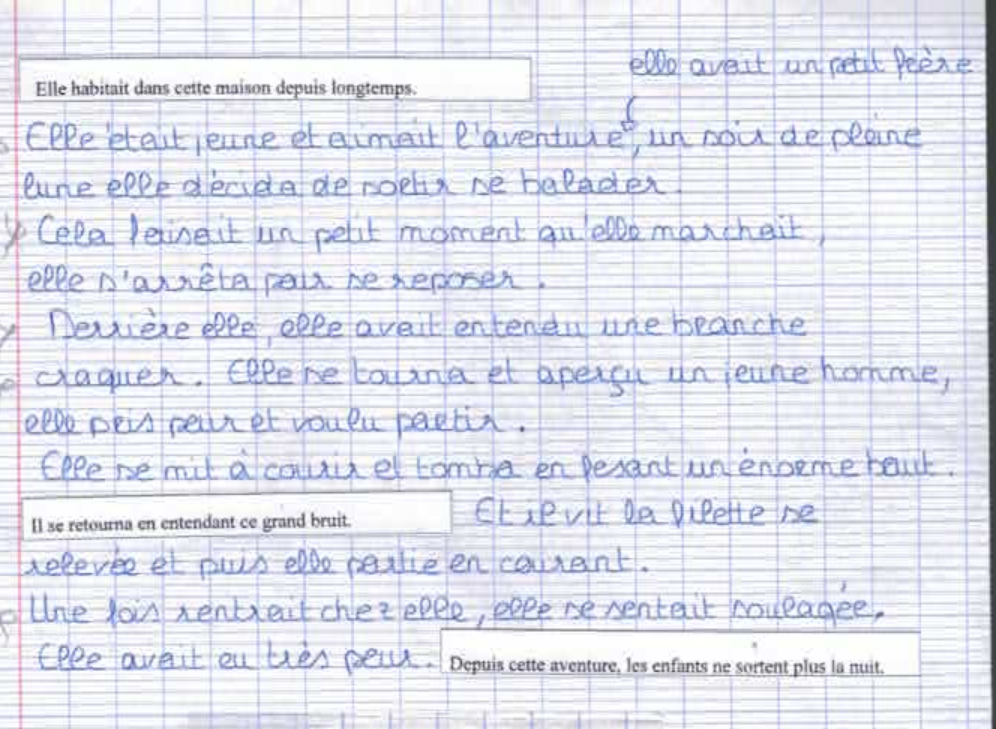 elle avait un petit frère
Elle habitait dans cette maison depuis longtemps.
Elle était jeune et aimait l'aventure, un soir de pleine
lune elle décida de sortir se balader.
Cela faisait un petit moment qu'elle marchait,
elle s'arrêta pour se reposer.
Derrière elle, elle avait entendu une branche
craquer. Elle se tourna et aperçu un jeune homme,
elle pris peur et voulu partir.
Elle se mit à courir et tomba en fesant un énorme bruit.
Il se retourna en entendant ce grand bruit. Et il vit la filette se
relevée et puis elle partie en courant.
Une fois rentrait chez elle, elle se sentait soulagée.
Elle avait eu très peur. Depuis cette aventure, les enfants ne sortent plus la nuit.